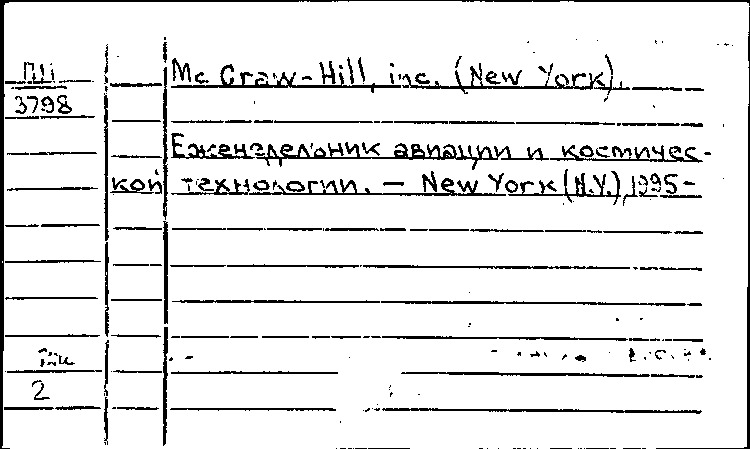 3798
Mc Graw-Hill, inc. (New York).
Еженедельник авиации и космичес-
кой технологии. — New York (N.Y.), 1995-
2